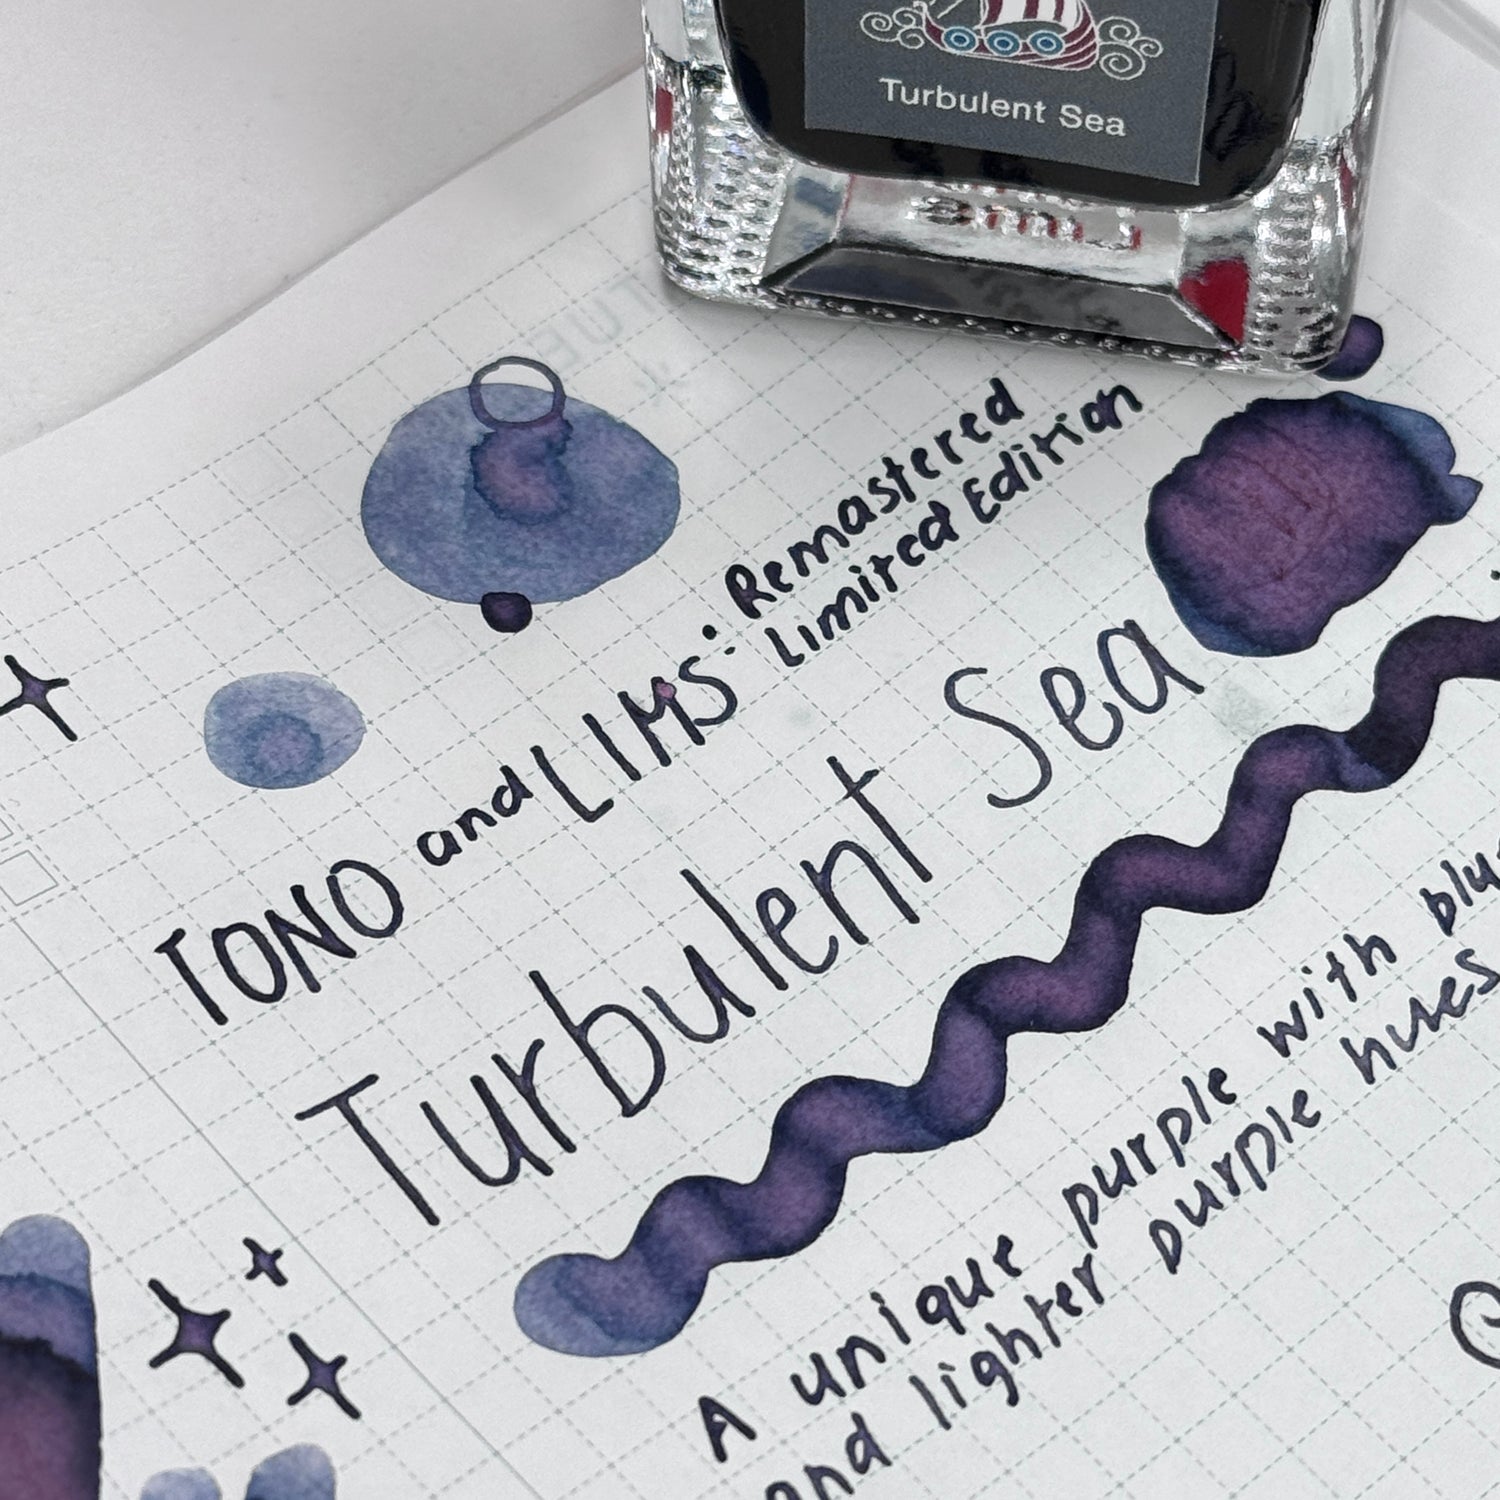 Turbulent Sea
Remastered
Limited Edition
TONO and LIMS:
Turbulent Sea
A unique purple with
and lighter purple hues